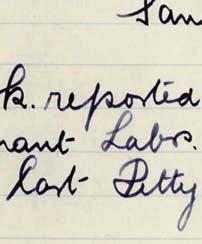 San
k. reported
nant Labrs.
East Petty